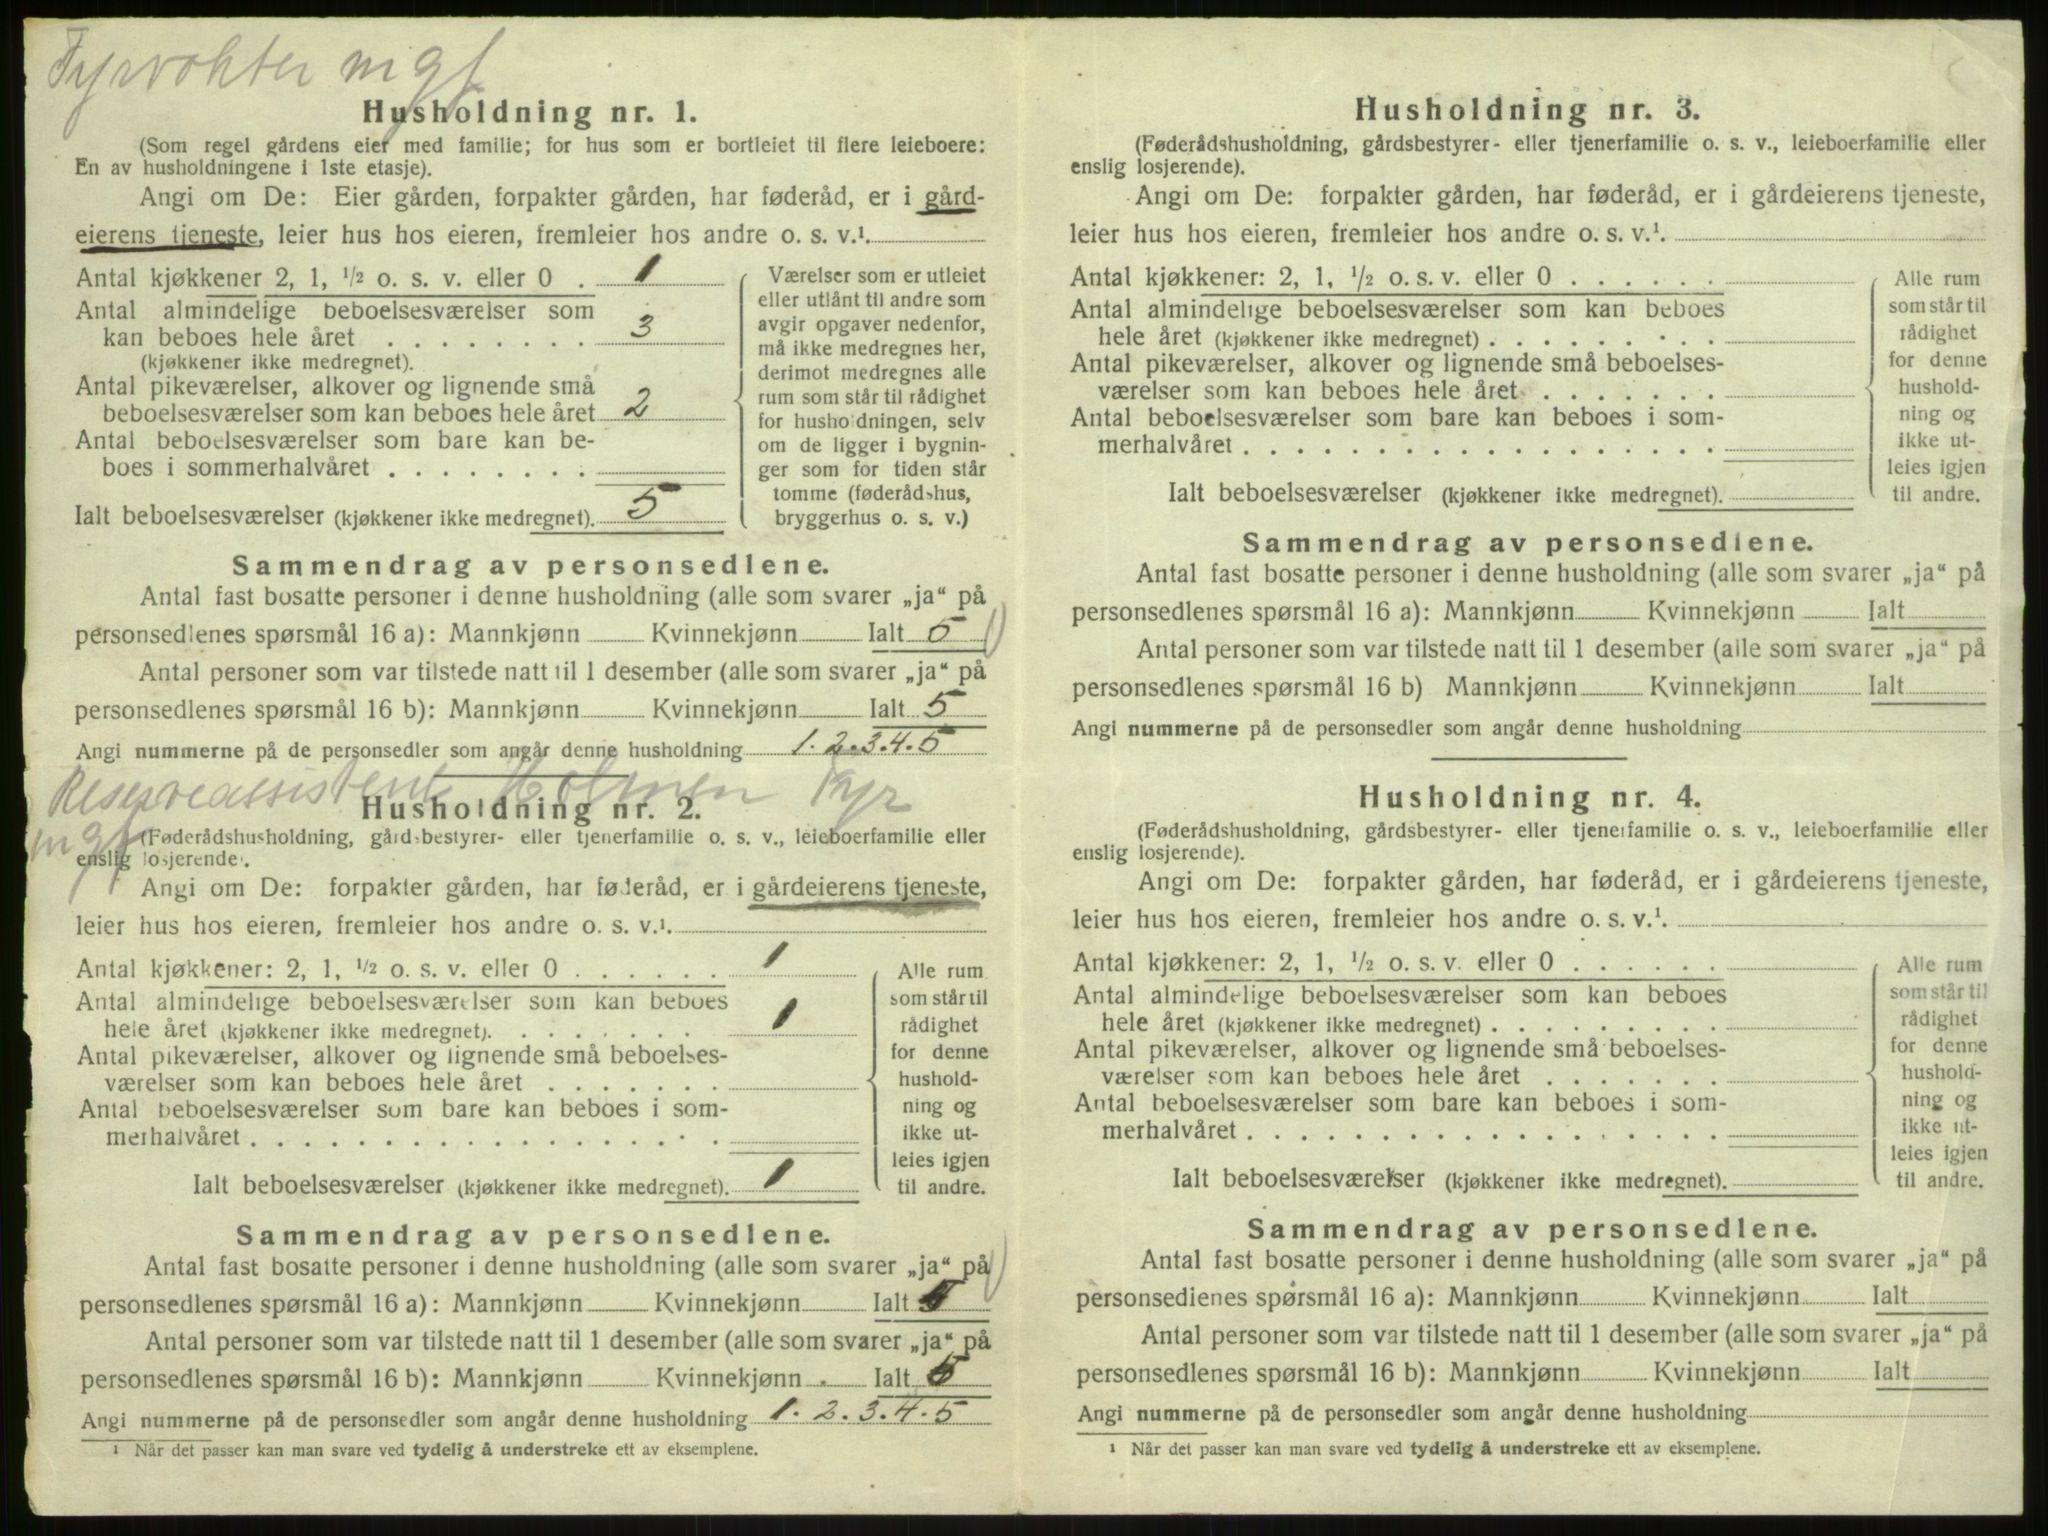 Fyrvokter mgf
Husholdning nr. 1.
(Som regel gårdens eier med familie; for hus som er bortleiet til flere leieboere:
En av husholdningene i 1ste etasje).
Angi om De: Eier gården, forpakter gården, har føderåd, er i gård-
eierens tjeneste, leier hus hos eieren, fremleier hos andre o. s. v.¹.
Antal kjøkkener 2, 1, ½ o. s. v. eller 0 . 1
Antal almindelige beboelsesværelser som
kan beboes hele året . . . . . . . . 3
(kjøkkener ikke medregnet).
Antal pikeværelser, alkover og lignende små
beboelsesværelser som kan beboes hele året 2
Antal beboelsesværelser som bare kan be-
boes i sommerhalvåret . . . . . . . .
Ialt beboelsesværelser (kjøkkener ikke medregnet). 5
Værelser som er utleiet
eller utlånt til andre som
avgir opgaver nedenfor,
må ikke medregnes her,
derimot medregnes alle
rum som står til rådighet
for husholdningen, selv
om de ligger i bygnin-
ger som for tiden står
tomme (føderådshus,
bryggerhus o. s. v.)
Sammendrag av personsedlene.
Antal fast bosatte personer i denne husholdning (alle som svarer „ja“ på
personsedlenes spørsmål 16 a): Mannkjønn Kvinnekjønn Ialt 5
Antal personer som var tilstede natt til 1 desember (alle som svarer „ja“ på
personsedlenes spørsmål 16 b): Mannkjønn Kvinnekjønn Ialt 5
Angi nummerne på de personsedler som angår denne husholdning 1.2.3.4.5
Reserveassistent Holmen Fyr
mgf
Husholdning nr. 2.
(Føderådshusholdning, gårdsbestyrer- eller tjenerfamilie o. s. v., leieboerfamilie eller
enslig losjerende).
Angi om De: forpakter gården, har føderåd, er i gårdeierens tjeneste,
leier hus hos eieren, fremleier hos andre o. s. v.¹.
Antal kjøkkener: 2, 1, ½ o. s. v. eller 0 . . . . . . 1
Antal almindelige beboelsesværelser som kan beboes
hele året (kjøkkener ikke medregnet). . . . . . . . 1
Antal pikeværelser, alkover og lignende små beboelses-
værelser som kan beboes hele året . . . . . . .
Antal beboelsesværelser som bare kan beboes i som-
merhalvåret . . . . . . . . . . . . . . . . . .
Ialt beboelsesværelser (kjøkkener ikke medregnet). 1
Alle rum
som står til
rådighet
for denne
hushold-
ning og
ikke ut-
leies igjen
til andre.
Sammendrag av personsedlene.
Antal fast bosatte personer i denne husholdning (alle som svarer „ja“ på
personsedlenes spørsmål 16 a): Mannkjønn Kvinnekjønn Ialt
Antal personer som var tilstede natt til 1 desember (alle som svarer „ja“ på
personsedlenes spørsmål 16 b): Mannkjønn Kvinnekjønn Ialt
Angi nummerne på de personsedler som angår denne husholdning 1.2.3.4.5
¹ Når det passer kan man svare ved tydelig å understreke ett av eksemplene.
Husholdning nr. 3.
(Føderådshusholdning, gårdsbestyrer- eller tjenerfamilie o. s. v., leieboerfamilie eller
enslig losjerende).
Angi om De: forpakter gården, har føderåd, er i gårdeierens tjeneste,
leier hus hos eieren, fremleier hos andre o. s. v.¹.
Antal kjøkkener: 2, 1, ½ o. s. v. eller 0 . . . . . .
Antal almindelige beboelsesværelser som kan beboes
hele året (kjøkkener ikke medregnet) . . . . . . . . .
Antal pikeværelser, alkover og lignende små beboelses-
værelser som kan beboes hele året . . . . . . .
Antal beboelsesværelser som bare kan beboes i som-
merhalvåret . . . . . . . . . . . . . . . . . .
Ialt beboelsesværelser (kjøkkener ikke medregnet).
Alle rum
som står til
rådighet
for denne
hushold-
ning og
ikke ut-
leies igjen
til andre.
Sammendrag av personsedlene.
Antal fast bosatte personer i denne husholdning (alle som svarer „ja“ på
personsedlenes spørsmål 16 a): Mannkjønn Kvinnekjønn Ialt
Antal personer som var tilstede natt til 1 desember (alle som svarer „ja“ på
personsedlenes spørsmål 16 b) Mannkjønn Kvinnekjønn Ialt
Angi nummerne på de personsedler som angår denne husholdning
Husholdning nr. 4.
(Føderådshusholdning, gårdsbestyrer- eller tjenerfamilie o. s. v., leieboerfamilie eller
enslig losjerende).
Angi om De: forpakter gården, har føderåd, er i gårdeierens tjeneste,
leier hus hos eieren, fremleier hos andre o. s. v.¹.
Antal kjøkkener: 2, 1, ½ o. s. v. eller 0 . . . . . .
Antal almindelige beboelsesværelser som kan beboes
hele året (kjøkkener ikke medregnet) . . . . . . . . .
Antal pikeværelser, alkover og lignende små beboelses-
værelser som kan beboes hele året . . . . . . .
Antal beboelsesværelser som bare kan beboes i som-
merhalvåret . . . . . . . . . . . . . . . . . .
Ialt beboelsesværelser (kjøkkener ikke medregnet).
Alle rum
som står til
rådighet
for denne
hushold-
ning og
ikke ut-
leies igjen
til andre.
Sammendrag av personsedlene.
Antal fast bosatte personer i denne husholdning (alle som svarer „ja“ på
personsedlenes spørsmål 16 a): Mannkjønn Kvinnekjønn Ialt
Antal personer som var tilstede natt til 1 desember (alle som svarer „ja“ på
personsedlenes spørsmål 16 b): Mannkjønn Kvinnekjønn Ialt
Angi nummerne på de personsedler som angår denne husholdning
¹ Når det passer kan man svare ved tydelig å understreke ett av eksemplene.